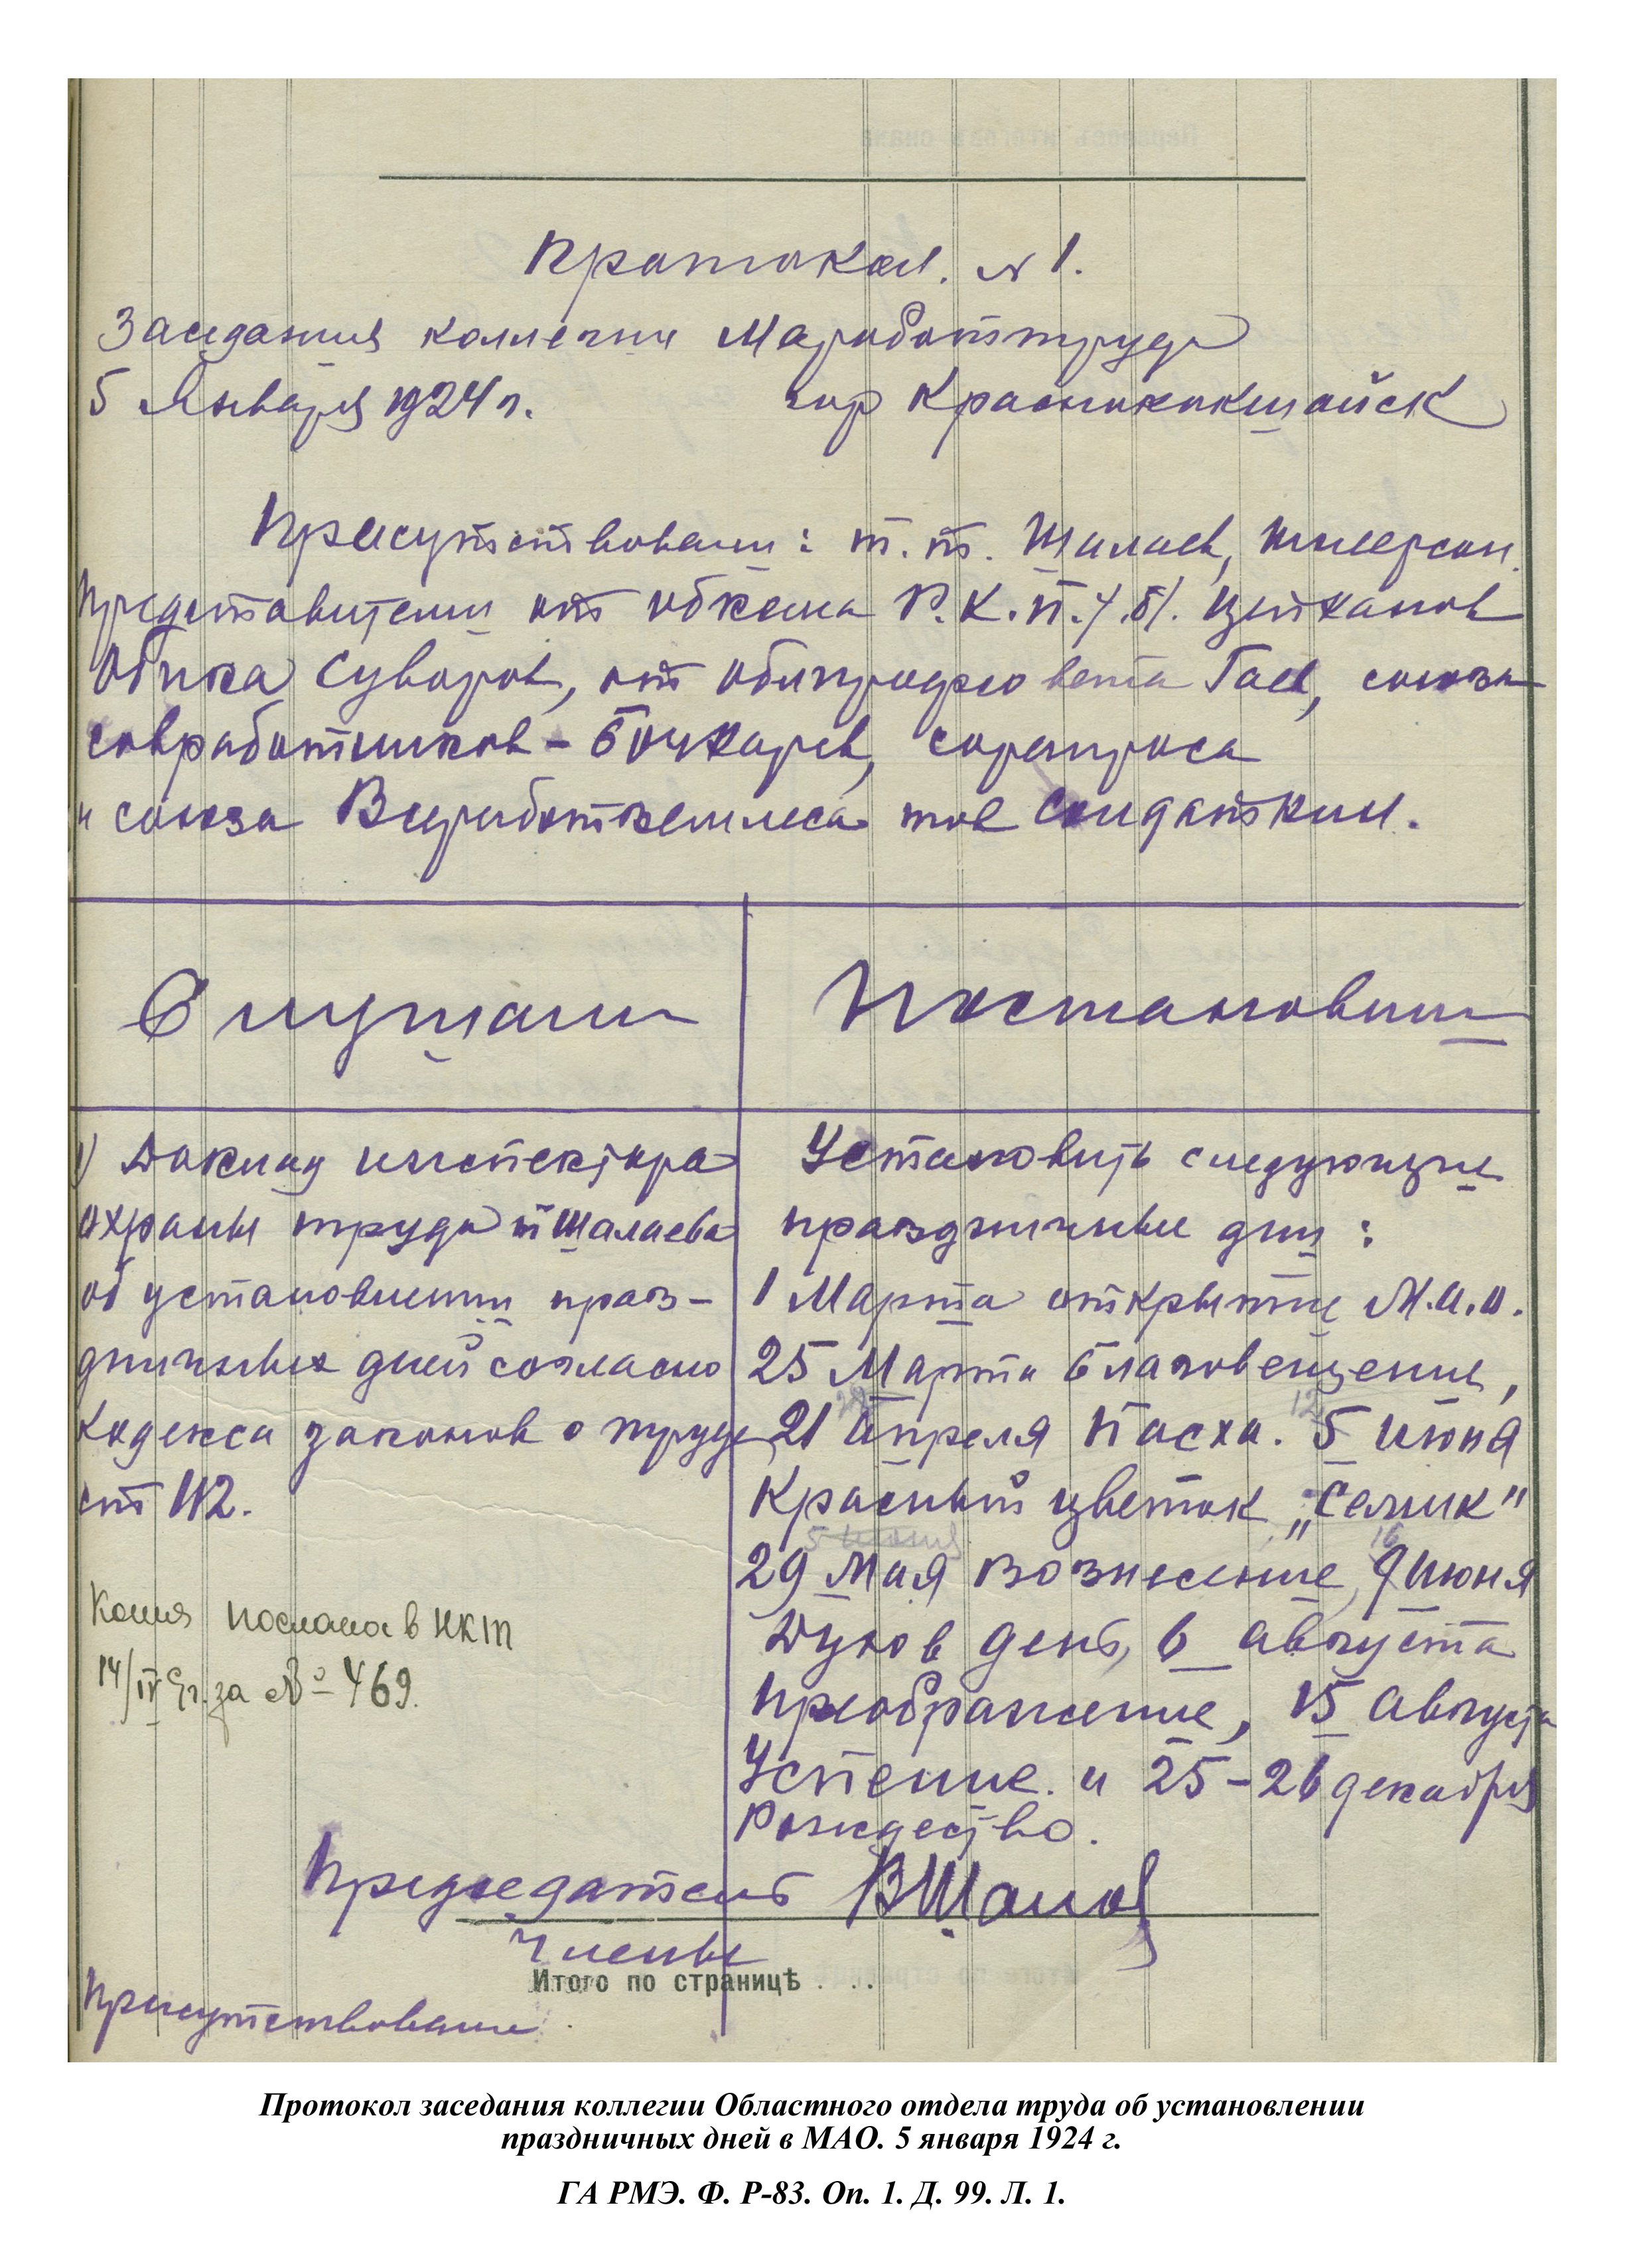 Протокол. № 1.
Заседания коллегии Мароботтруда
5 Января 1924 г. гор Краснококшайск
Присутствовали: т.т. Шалаев,
Представители от обкома Р.К.П./б/. Цейханов
Обика Суворов, от облпрофсовета Гаев, союза
совработников - Бочкарев, сорапроса
и союза Всеработземлеса тов Солдаткин.
Слушали Постановили
1) Доклад инспектора
охраны труда т Шалаева
об установлении праз-
дничных дней согласно
Кодекса законов о труде
ст 112.
Копия послана в НКТ
14/IV 24г. за № 469.
Установить следующие
праздничные дни:
1 Марта открытие М.А.О.
25 Марта Благовещение,
28 12
21 Апреля Пасха. 5 Июня
Красный цветок „Семик"
5 Июня 16
29 Мая Вознесение, 9 Июня
Духов день, 6 Августа
Преображение, 15 Августа
Успение и 25-26 декабря
Рождество.
Председатель ВШалаев
Члены
Итого по страницѣ . . .
Присутствовали
Протокол заседания коллегии Областного отдела труда об установлении
праздничных дней в МАО. 5 января 1924 г.
ГА РМЭ. Ф. Р-83. Оп. 1. Д. 99. Л. 1.